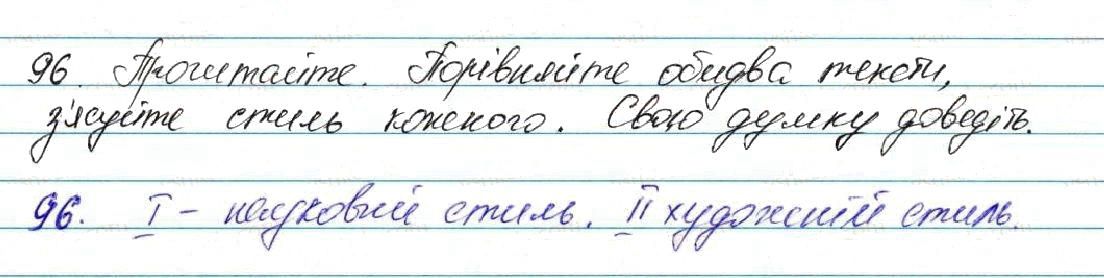 96. Прочитайте. Порівняйте обидва тексти,
з'ясуйте стиль кожного. Свою думку доведіть.
96. I – науковий стиль. II художній стиль.